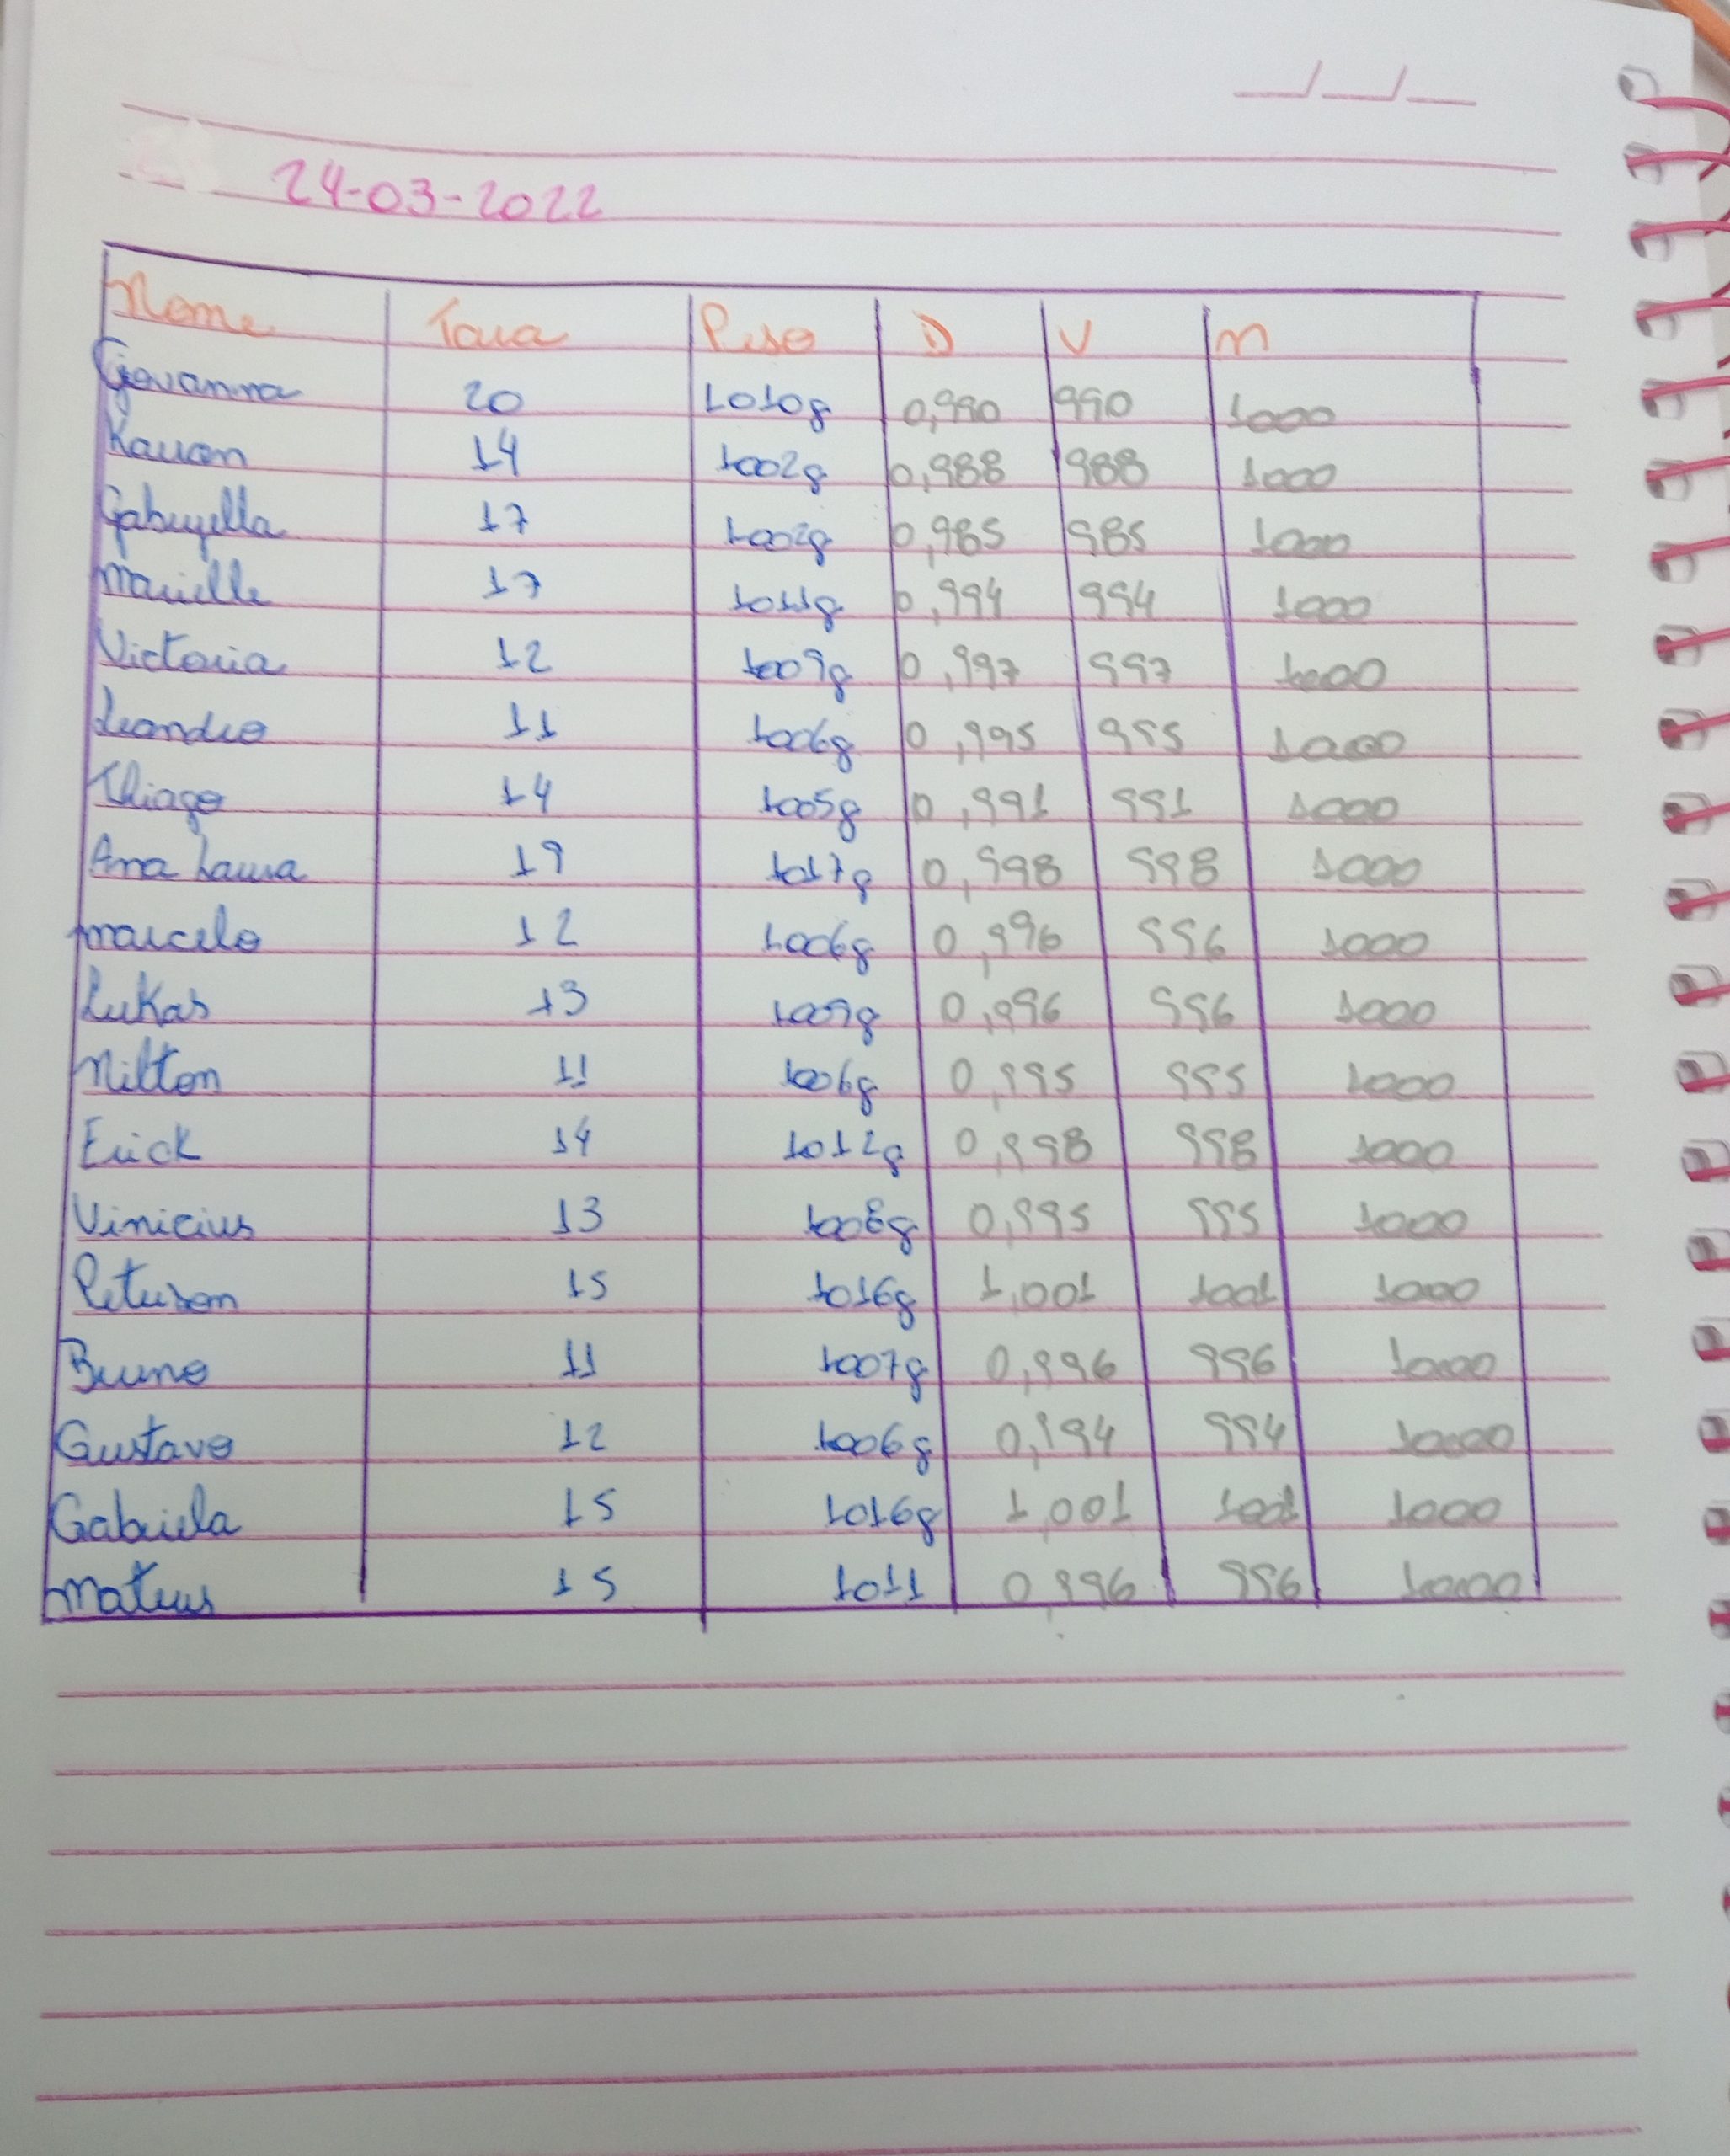 24-03-2022
Nome Tara Peso D V m
Giovanna 20 1010g 0,990 990 1000
Kauan 14 1002g 0,988 988 1000
Gabryella 17 1002g 0,985 985 1000
Marielle 17 1011g 0,994 994 1000
Victoria 12 1009g 0,997 997 1000
Leandro 11 1006g 0,995 995 1000
Thiago 14 1005g 0,991 991 1000
Ana Laura 19 1017g 0,998 998 1000
marcelo 12 1006g 0,996 996 1000
Lukas 13 1009g 0,996 996 1000
Milton 11 1006g 0,995 995 1000
Erick 14 1012g 0,998 998 1000
Vinicius 13 1008g 0,995 995 1000
Peterson 15 1016g 1,001 1001 1000
Bruno 11 1007g 0,996 996 1000
Gustavo 12 1006g 0,994 994 1000
Gabriela 15 1016g 1,001 1001 1000
mateus 15 1011 0,996 996 1000